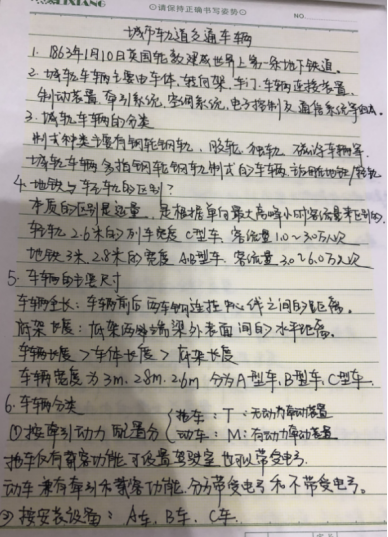 LIXIANG
◎请保持正确书写姿势◎
NO.
城市轨道交通车辆
1. 1863年1月10日英国伦敦建成世界上第一条地下铁道。
2. 城轨车辆主要由车体、转向架、车门、车辆连接装置、
制动装置、牵引系统、空调系统、电子控制及通信系统等组成。
3. 城轨车辆的分类
制式种类主要有钢轮钢轨、胶轮、独轨、磁浮车辆等.
城轨车辆多指钢轮钢轨制式的车辆.话即指地铁/轻轨
4. 地铁与轻轨的区别?
本质的区别是运量,是根据单向最大高峰小时客流量来区别的.
轻轨 2.6米的列车宽度 C型车. 客流量1.0~3.0万人次
地铁 3米、2.8米的宽度 A.B型车. 客流量 3.0~6.0万人次
5. 车辆的主要尺寸
车辆全长:车辆前后两车钩连挂中心线之间的距离。
底架长度:底架两端端梁外表面间的水平距离。
车辆长度>车体长度>底架长度
车辆宽度为 3m. 2.8m. 2.6m 分为A型车、B型车、C型车.
6. 车辆分类
①按牵引动力配置分 { 拖车:T:无动力牵引装置
动车:M:有动力牵引装置
拖车仅有载客功能,可设置驾驶室也可以带受电弓.
动车兼有牵引和载客功能.分为带受电弓和不带受电弓。
②按安装设备:A车、B车、C车.